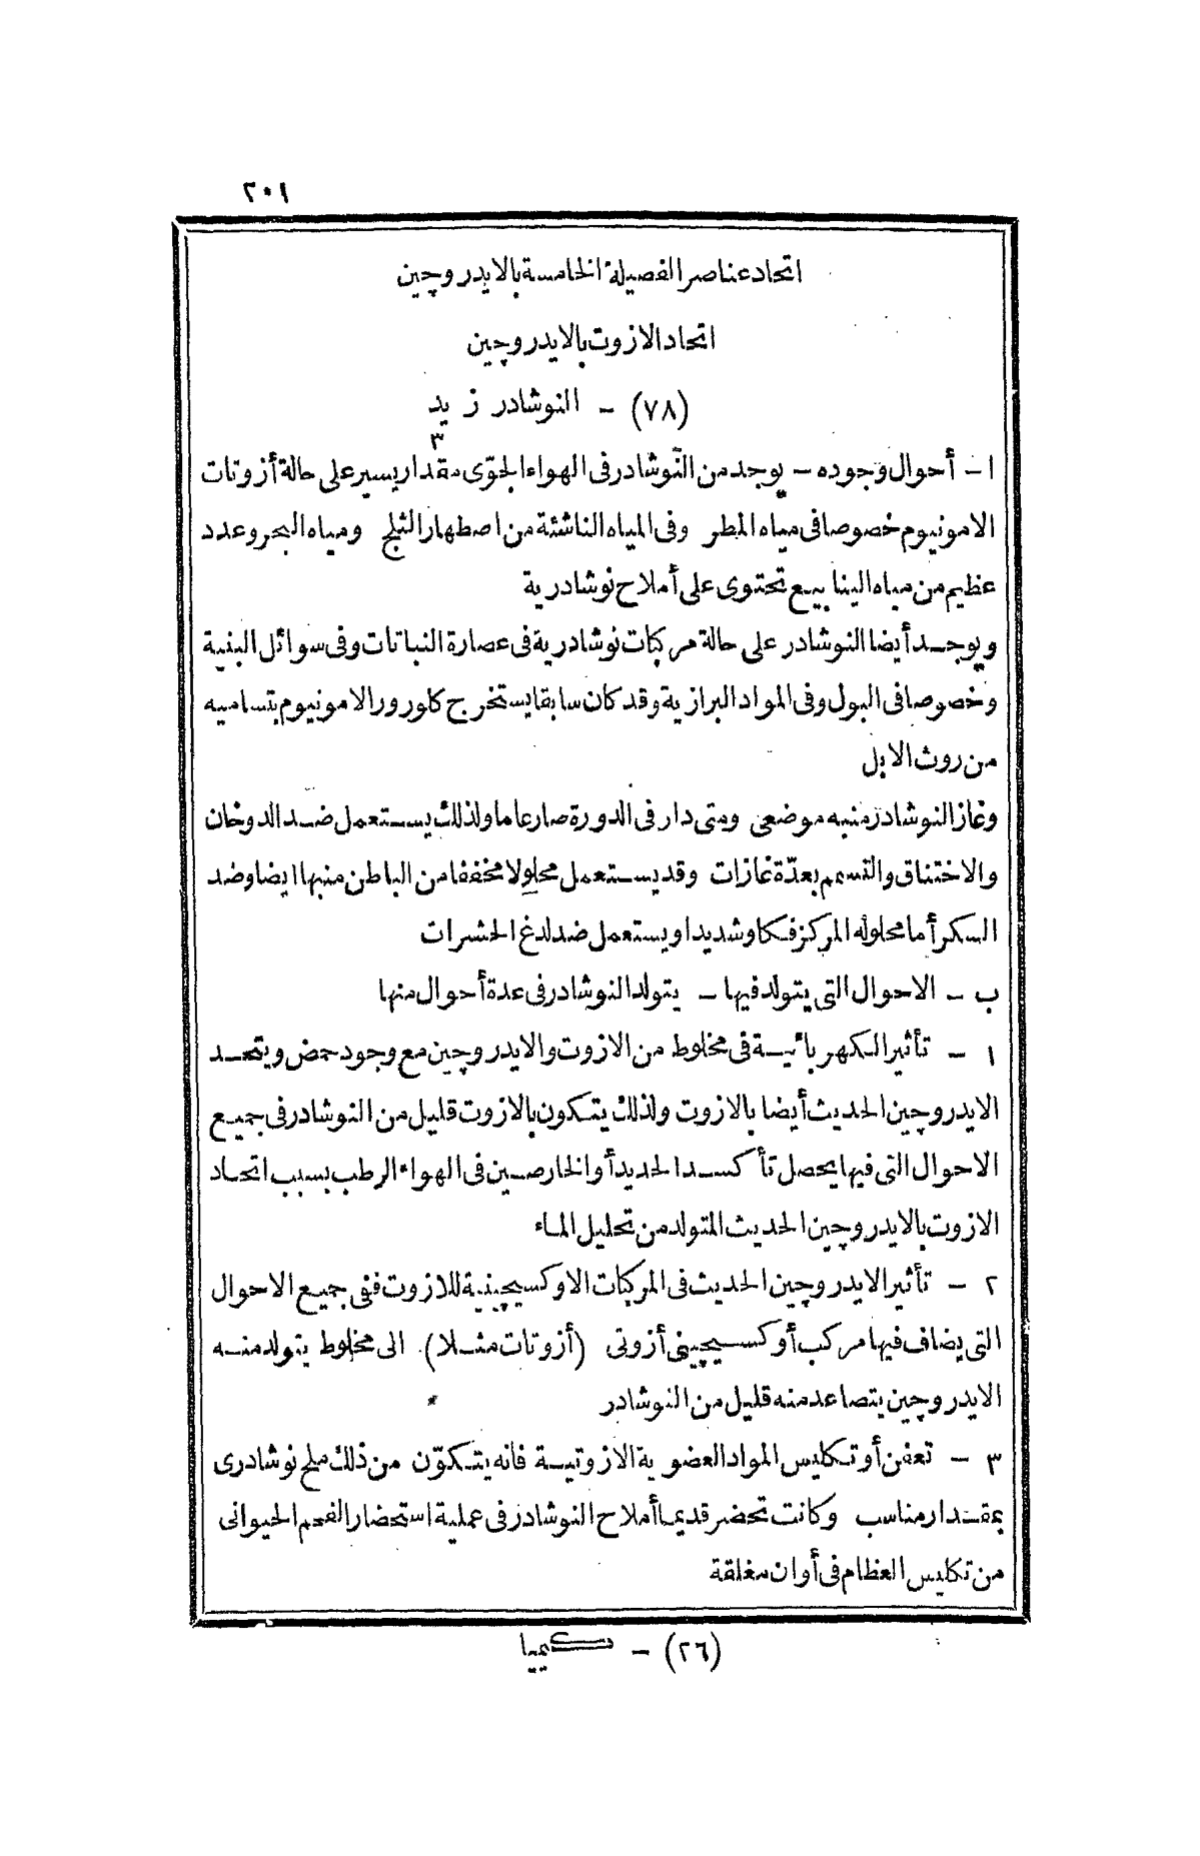 ٢٠١
اتحاد عناصر الفصيلة الخامسة بالايدروچين
اتحاد الازوت بالايدروچين
(٧٨) - النوشادر ز يد
٣
ا - أحوال وجوده - يوجد من النّوشادر فى الهواء الجوّى مقدار يسير على حالة أزوتات
الامونيوم خصوصا فى مياه المطر وفى المياه الناشئة من اصطهار الثلج ومياه البحر وعدد
عظيم من مياه الينابيع تحتوى على أملاح نوشادرية
ويوجد أيضا النوشادر على حالة مركبات نوشادرية فى عصارة النباتات وفى سوائل البنية
وخصوصا فى البول وفى المواد البرازية وقد كان سابقا يستخرج كلورور الامونيوم بتساميه
من روث الابل
وغاز النوشادر منبه موضعى ومتى دار فى الدورة صار عاما ولذلك يستعمل ضد الدوخان
والاختناق والتسمم بعدّة غازات وقد يستعمل محلولا مخففا من الباطن منبها ايضا وضد
السكر أما محلوله المركز فكاو شديدا ويستعمل ضد لدغ الحشرات
ب - الاحوال التى يتولد فيها - يتولد النوشادر فى عدة أحوال منها
١ - تأثير الكهربائية فى مخلوط من الازوت والايدروچين مع وجود حمض ويتحد
الايدروچين الحديث أيضا بالازوت ولذلك يتكون بالازوت قليل من النوشادر فى جميع
الاحوال التى فيها يحصل تأكسد الحديد أو الخارصين فى الهواء الرطب بسبب اتحاد
الازوت بالايدروچين الحديث المتولد من تحليل الماء
٢ - تأثير الايدروچين الحديث فى المركبات الاوكسيچينية للازوت ففى جميع الاحوال
التى يضاف فيها مركب أوكسيچينى أزوتى (أزوتات مثلا) الى مخلوط يتولد منه
الايدروچين يتصاعد منه قليل من النوشادر
٣ - تعفن أو تكليس المواد العضوية الازوتية فانه يتكوّن من ذلك ملح نوشادرى
بمقدار مناسب وكانت تحضر قديما أملاح النوشادر فى عملية استحضار الفحم الحيوانى
من تكليس العظام فى أوان مغلقة
(٢٦) - كيميا